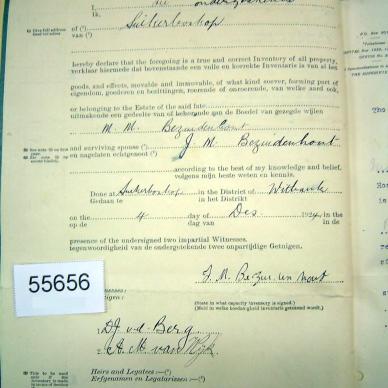 I,
Ik,
of (¹) Suikerboschop
van (¹)
hereby declare that the foregoing is a true and correct Inventory of all property,
verklaar hiermede dat bovenstaande een volle en korrekte Inventaris is van al het
goods, and effects, movable and immovable, of what kind soever, forming part of
eigendom, goederen en bezittingen, roerende of onroerende, van welke aard ook,
or belonging to the Estate of the said late
uitmakende een gedeelte van of behorende aan de Boedel van gezegde wijlen
M. M. Bezuidenhout
and surviving spouse (²) J. M. Bezuidenhout
en nagelaten echtgenoot (²)
according to the best of my knowledge and belief.
volgens mijn beste weten en kennis.
Done at Suikerboschop in the District of
Gedaan te in het Distrikt
on the 4 day of Des 1924, in the
op de dag van in de
presence of the undersigned two impartial Witnesses.
tegenwoordigheid van de ondergetekende twee onpartijdige Getuigen.
55656
(State in what capacity inventory is signed.)
(Meld in welke hoedanigheid inventaris getekend wordt.)
1 D. J. v. d. Berg
2 A. M. van Wyk
Heirs and Legatees :—(³)
Erfgenamen en Legatarissen :—(³)